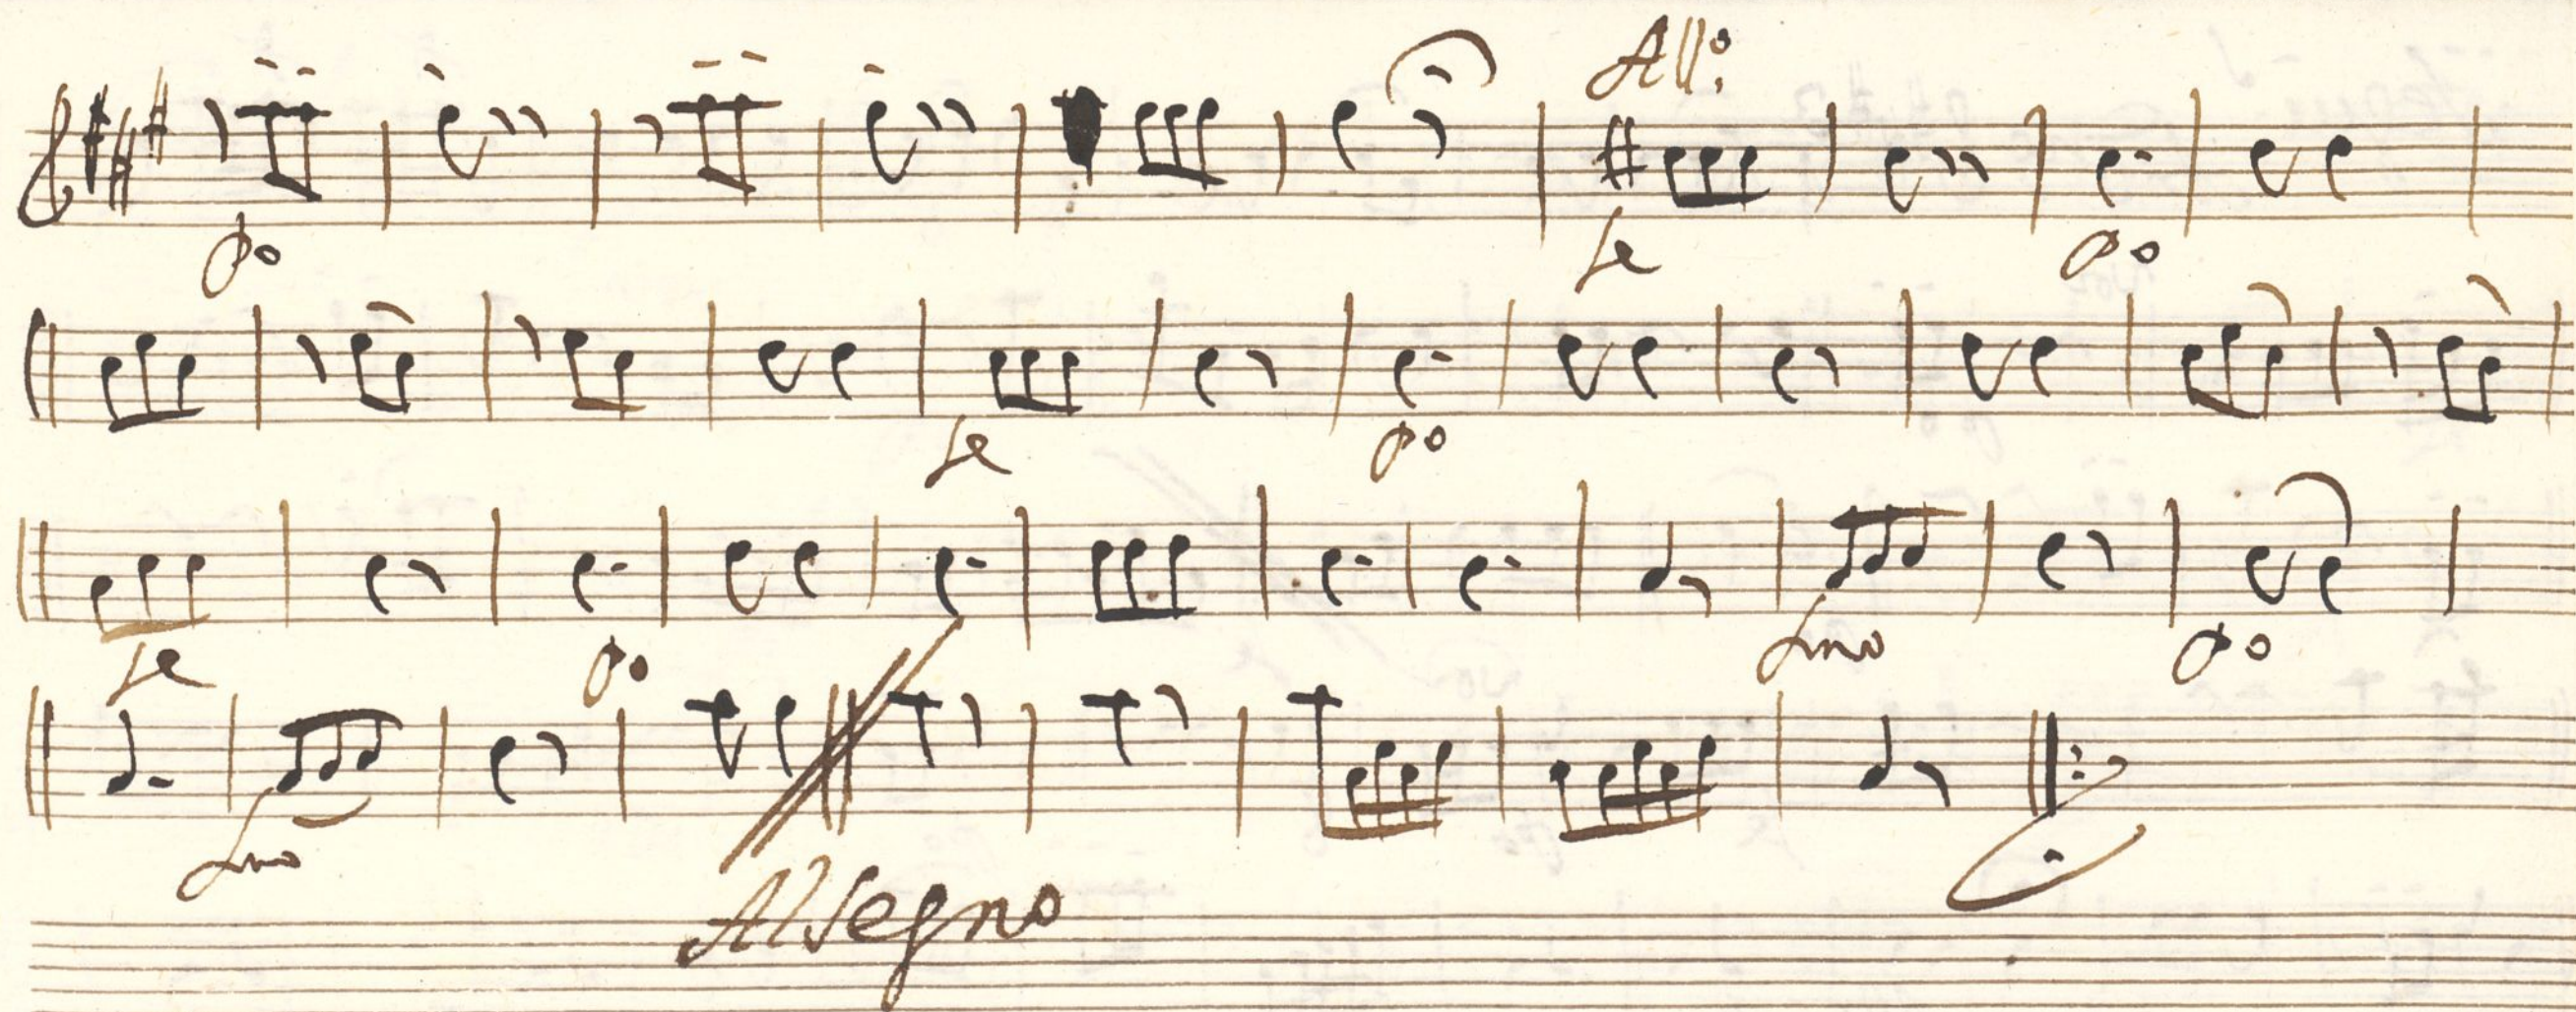 All.º
po fe po
fe po
fe po fmo po
fmo
Al Segno